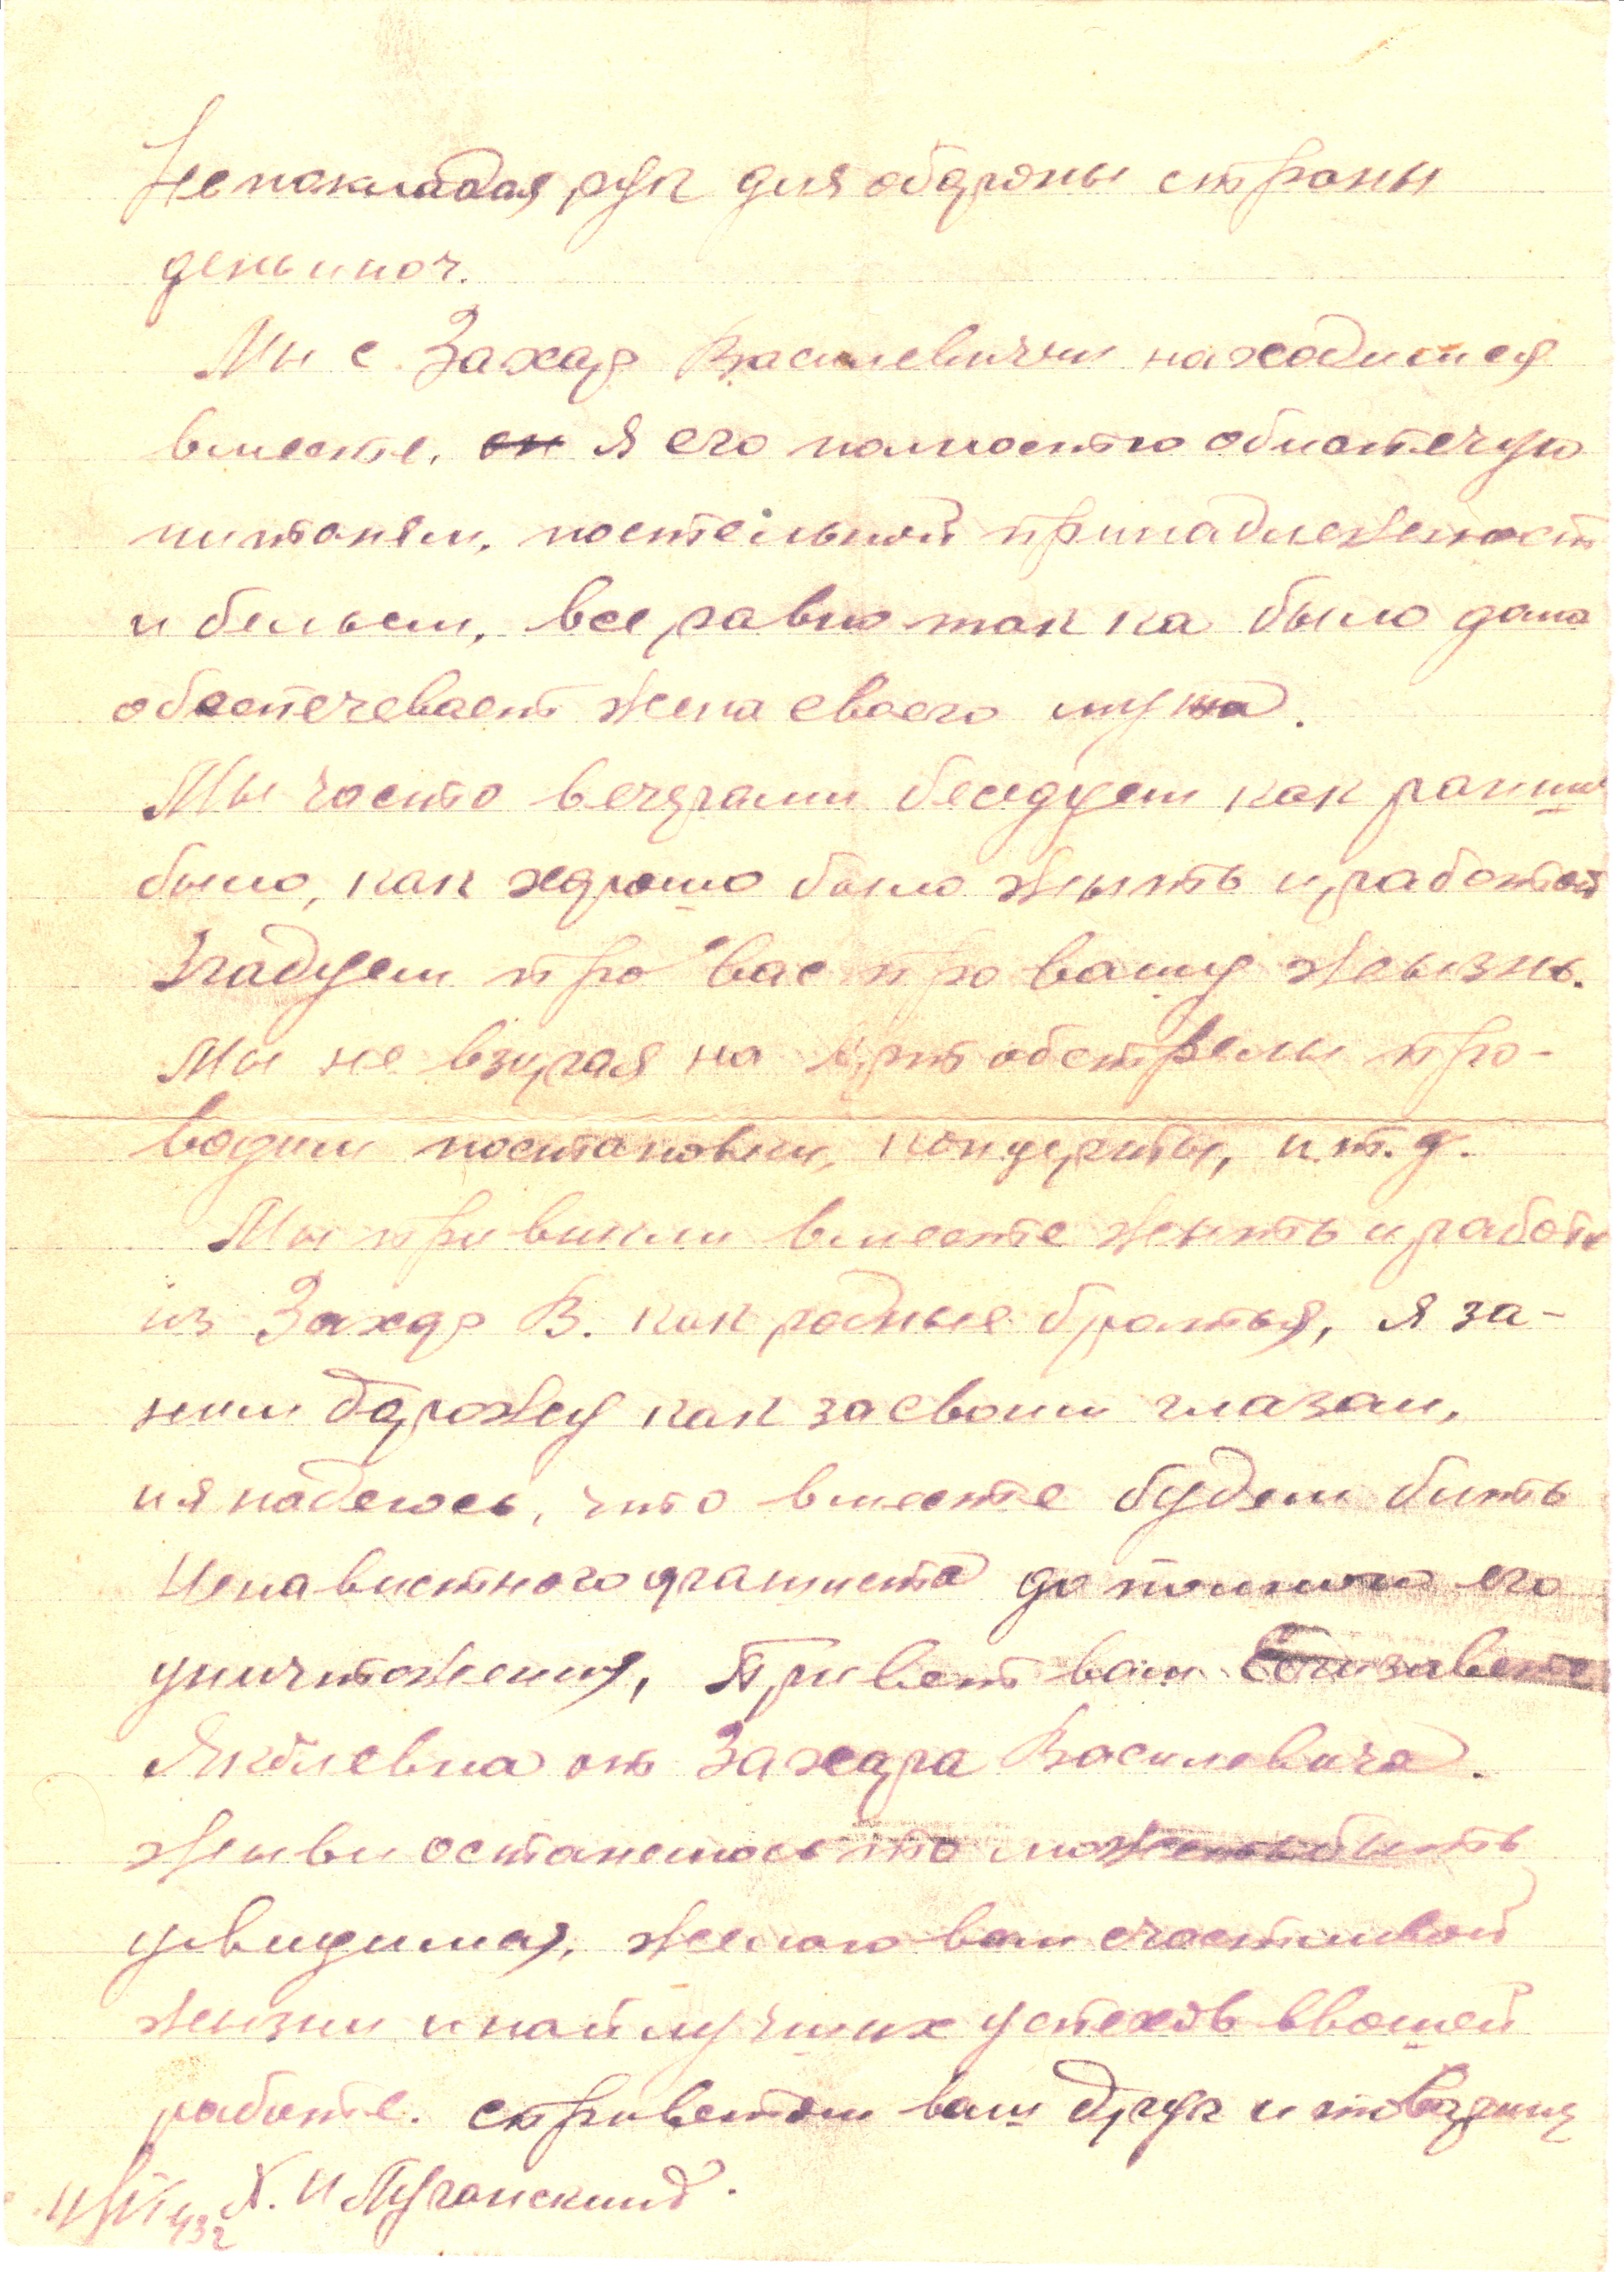 Непокладая рук для обороны страны
день и ноч.
Мы с Захар Василевичим находимся
вместе, он я его полностю обиспечую
питанем, постельной принадлежност
и бельем, все равно так ка было дома
обеспечевает жена своего мужа.
Мы часто вечерами беседуем как раниш
было, как хорошо было жыть и работат
Згадуем про вас про вашу жызнь.
Мы не взирая на арт обстрелы про-
водим постановки, концерты, и.т.д.
Мы привикли вместе жыть и работа
из Захар В. как родные братья, я за-
ним дорожу как за своим глазам,
и я надеюсь, что вместе будем бить
Ненавистного фашиста до полного его
уничтожения, Привет вам Елизавете
Яковлевна от Захара Василевича.
Жыви останемось то может быть
увидимся, желаю вам счастливой
жызни и найлучших успехов в вашей
работе. сприветом ваш друг и товарищ
Х. И Луганский.
43г